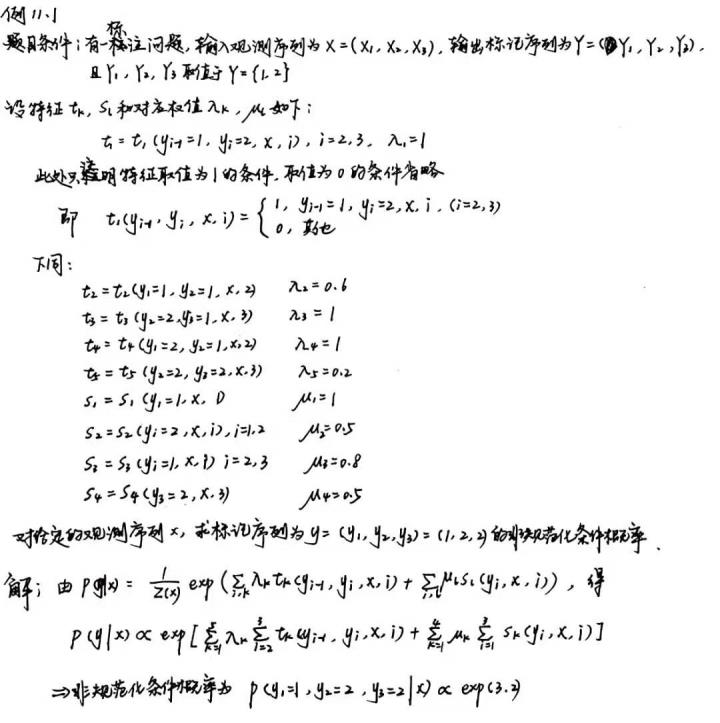 例11.1
题目条件:有一标注问题,输入观测序列为X=(X₁,X₂,X₃),输出标记序列为Y=(Y₁,Y₂,Y₃),
且Y₁,Y₂,Y₃取值于Y={1,2}
设特征tₖ,Sₗ和对应权值λₖ,μₗ如下:
t₁=t₁(yᵢ₋₁=1,yᵢ=2,x,i),i=2,3,λ₁=1
此处只注明特征取值为1的条件,取值为0的条件省略
即 t₁(yᵢ₋₁,yᵢ,x,i)={1,yᵢ₋₁=1,yᵢ=2,x,i,(i=2,3)
0,其他
下同:
t₂=t₂(y₁=1,y₂=1,x,2) λ₂=0.6
t₃=t₃(y₂=2,y₃=1,x,3) λ₃=1
t₄=t₄(y₁=2,y₂=1,x,2) λ₄=1
t₅=t₅(y₂=2,y₃=2,x,3) λ₅=0.2
S₁=S₁(y₁=1,x,1) μ₁=1
S₂=S₂(yᵢ=2,x,i),i=1,2 μ₂=0.5
S₃=S₃(yᵢ=1,x,i) i=2,3 μ₃=0.8
S₄=S₄(y₃=2,x,3) μ₄=0.5
对给定的观测序列x,求标记序列为y=(y₁,y₂,y₃)=(1,2,2)的非规范化条件概率.
解:由P(y|x)=1/Z(x) exp(∑ᵢ,ₖλₖtₖ(yᵢ₋₁,yᵢ,x,i)+∑ᵢ,ₗμₗSₗ(yᵢ,x,i)),得
P(y|x)∝exp[∑ₖ₌₁⁵λₖ∑ᵢ₌₂³tₖ(yᵢ₋₁,yᵢ,x,i)+∑ₖ₌₁⁴μₖ∑ᵢ₌₁³Sₖ(yᵢ,x,i)]
⇒非规范化条件概率为 P(y₁=1,y₂=2,y₃=2|x)∝exp(3.2)